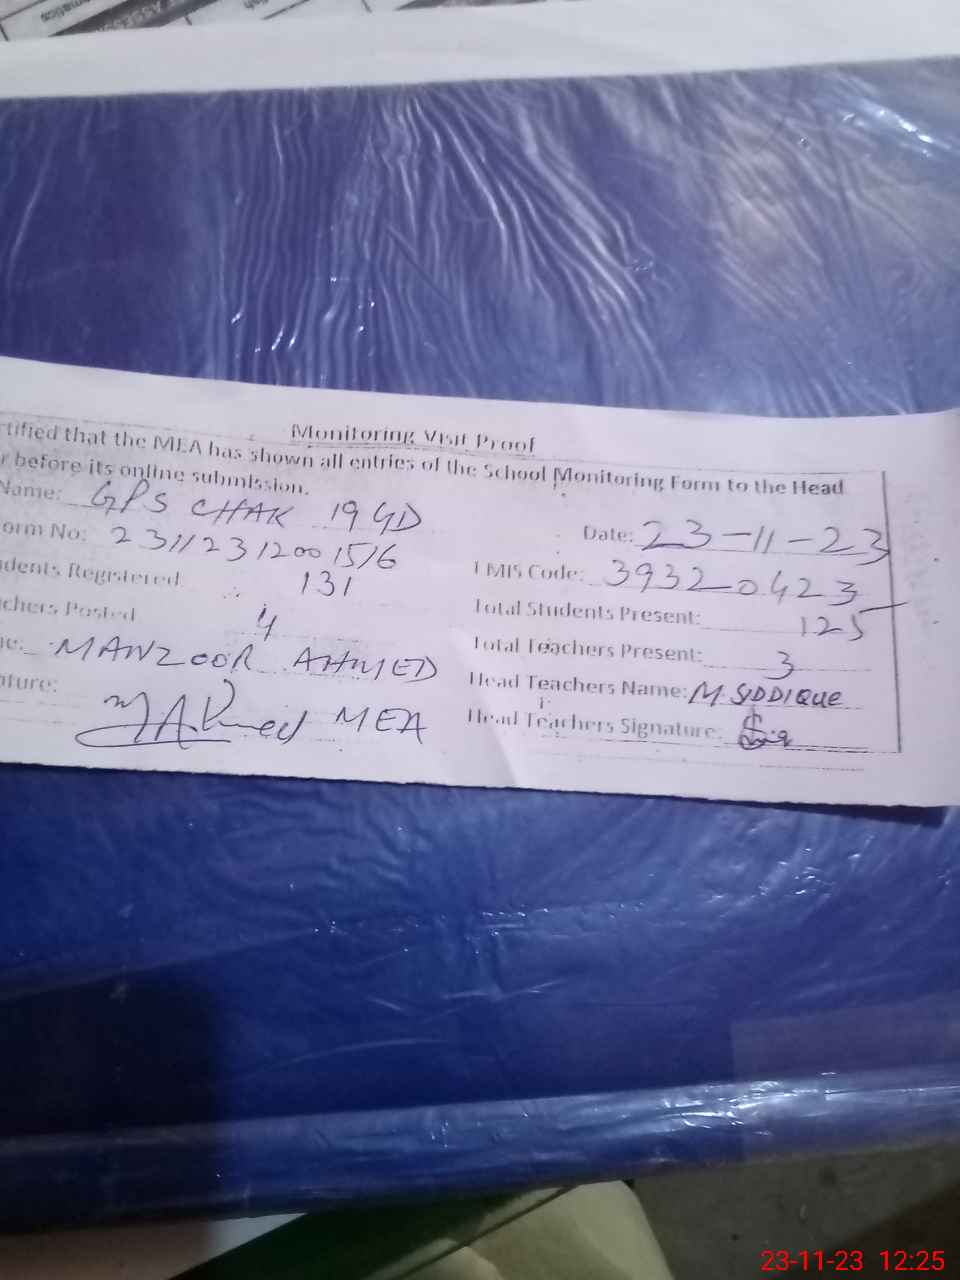 Monitoring Visit Proof
rtified that the MEA has shown all entries of the School Monitoring Form to the Head
r before its online submission.
Name: GPS CHAK 19 GD
Date: 23-11-23
orm No: 23112312001516
EMIS Code: 39320423
dents Registered 131
Total Students Present: 125
chers Posted 4
Total Teachers Present: 3
e: MANZOOR AHMED
Head Teachers Name: M SIDDIQUE
ature: MAhmed MEA
Head Teachers Signature:
23-11-23 12:25